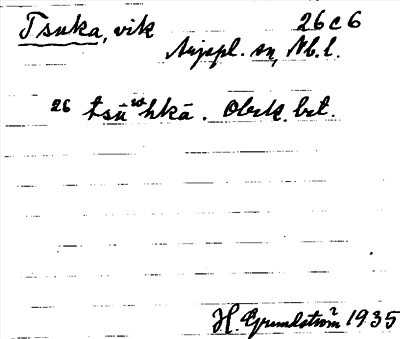 Tsuka, vik 26c6
Arjepl. sn, Nb. l.
26 tsū hkā. Obek. bet.
H. Grundström 1935